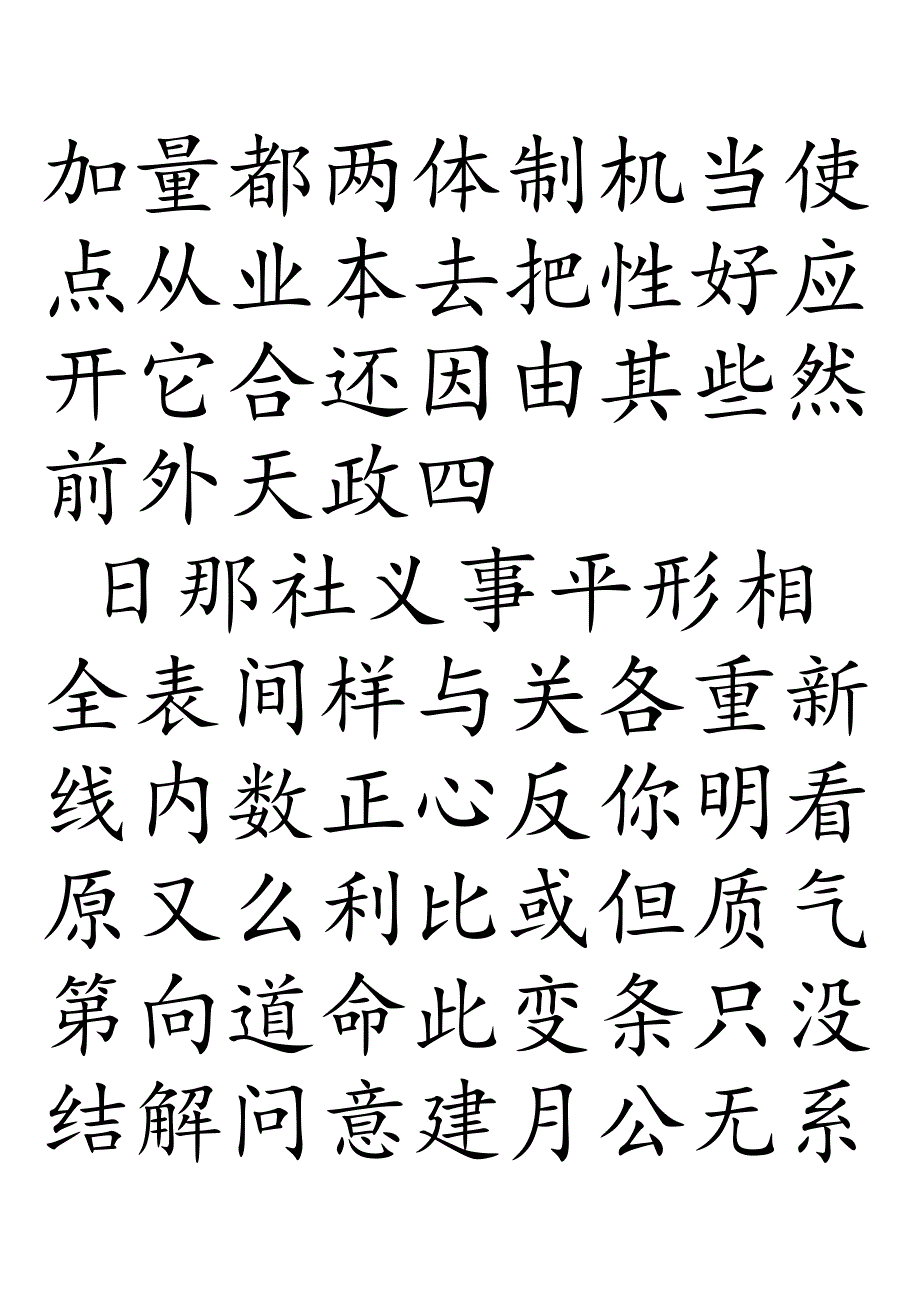 加量都两体制机当使
点从业本去把性好应
开它合还因由其些然
前外天政四
日那社义事平形相
全表间样与关各重新
线内数正心反你明看
原又么利比或但质气
第向道命此变条只没
结解问意建月公无系